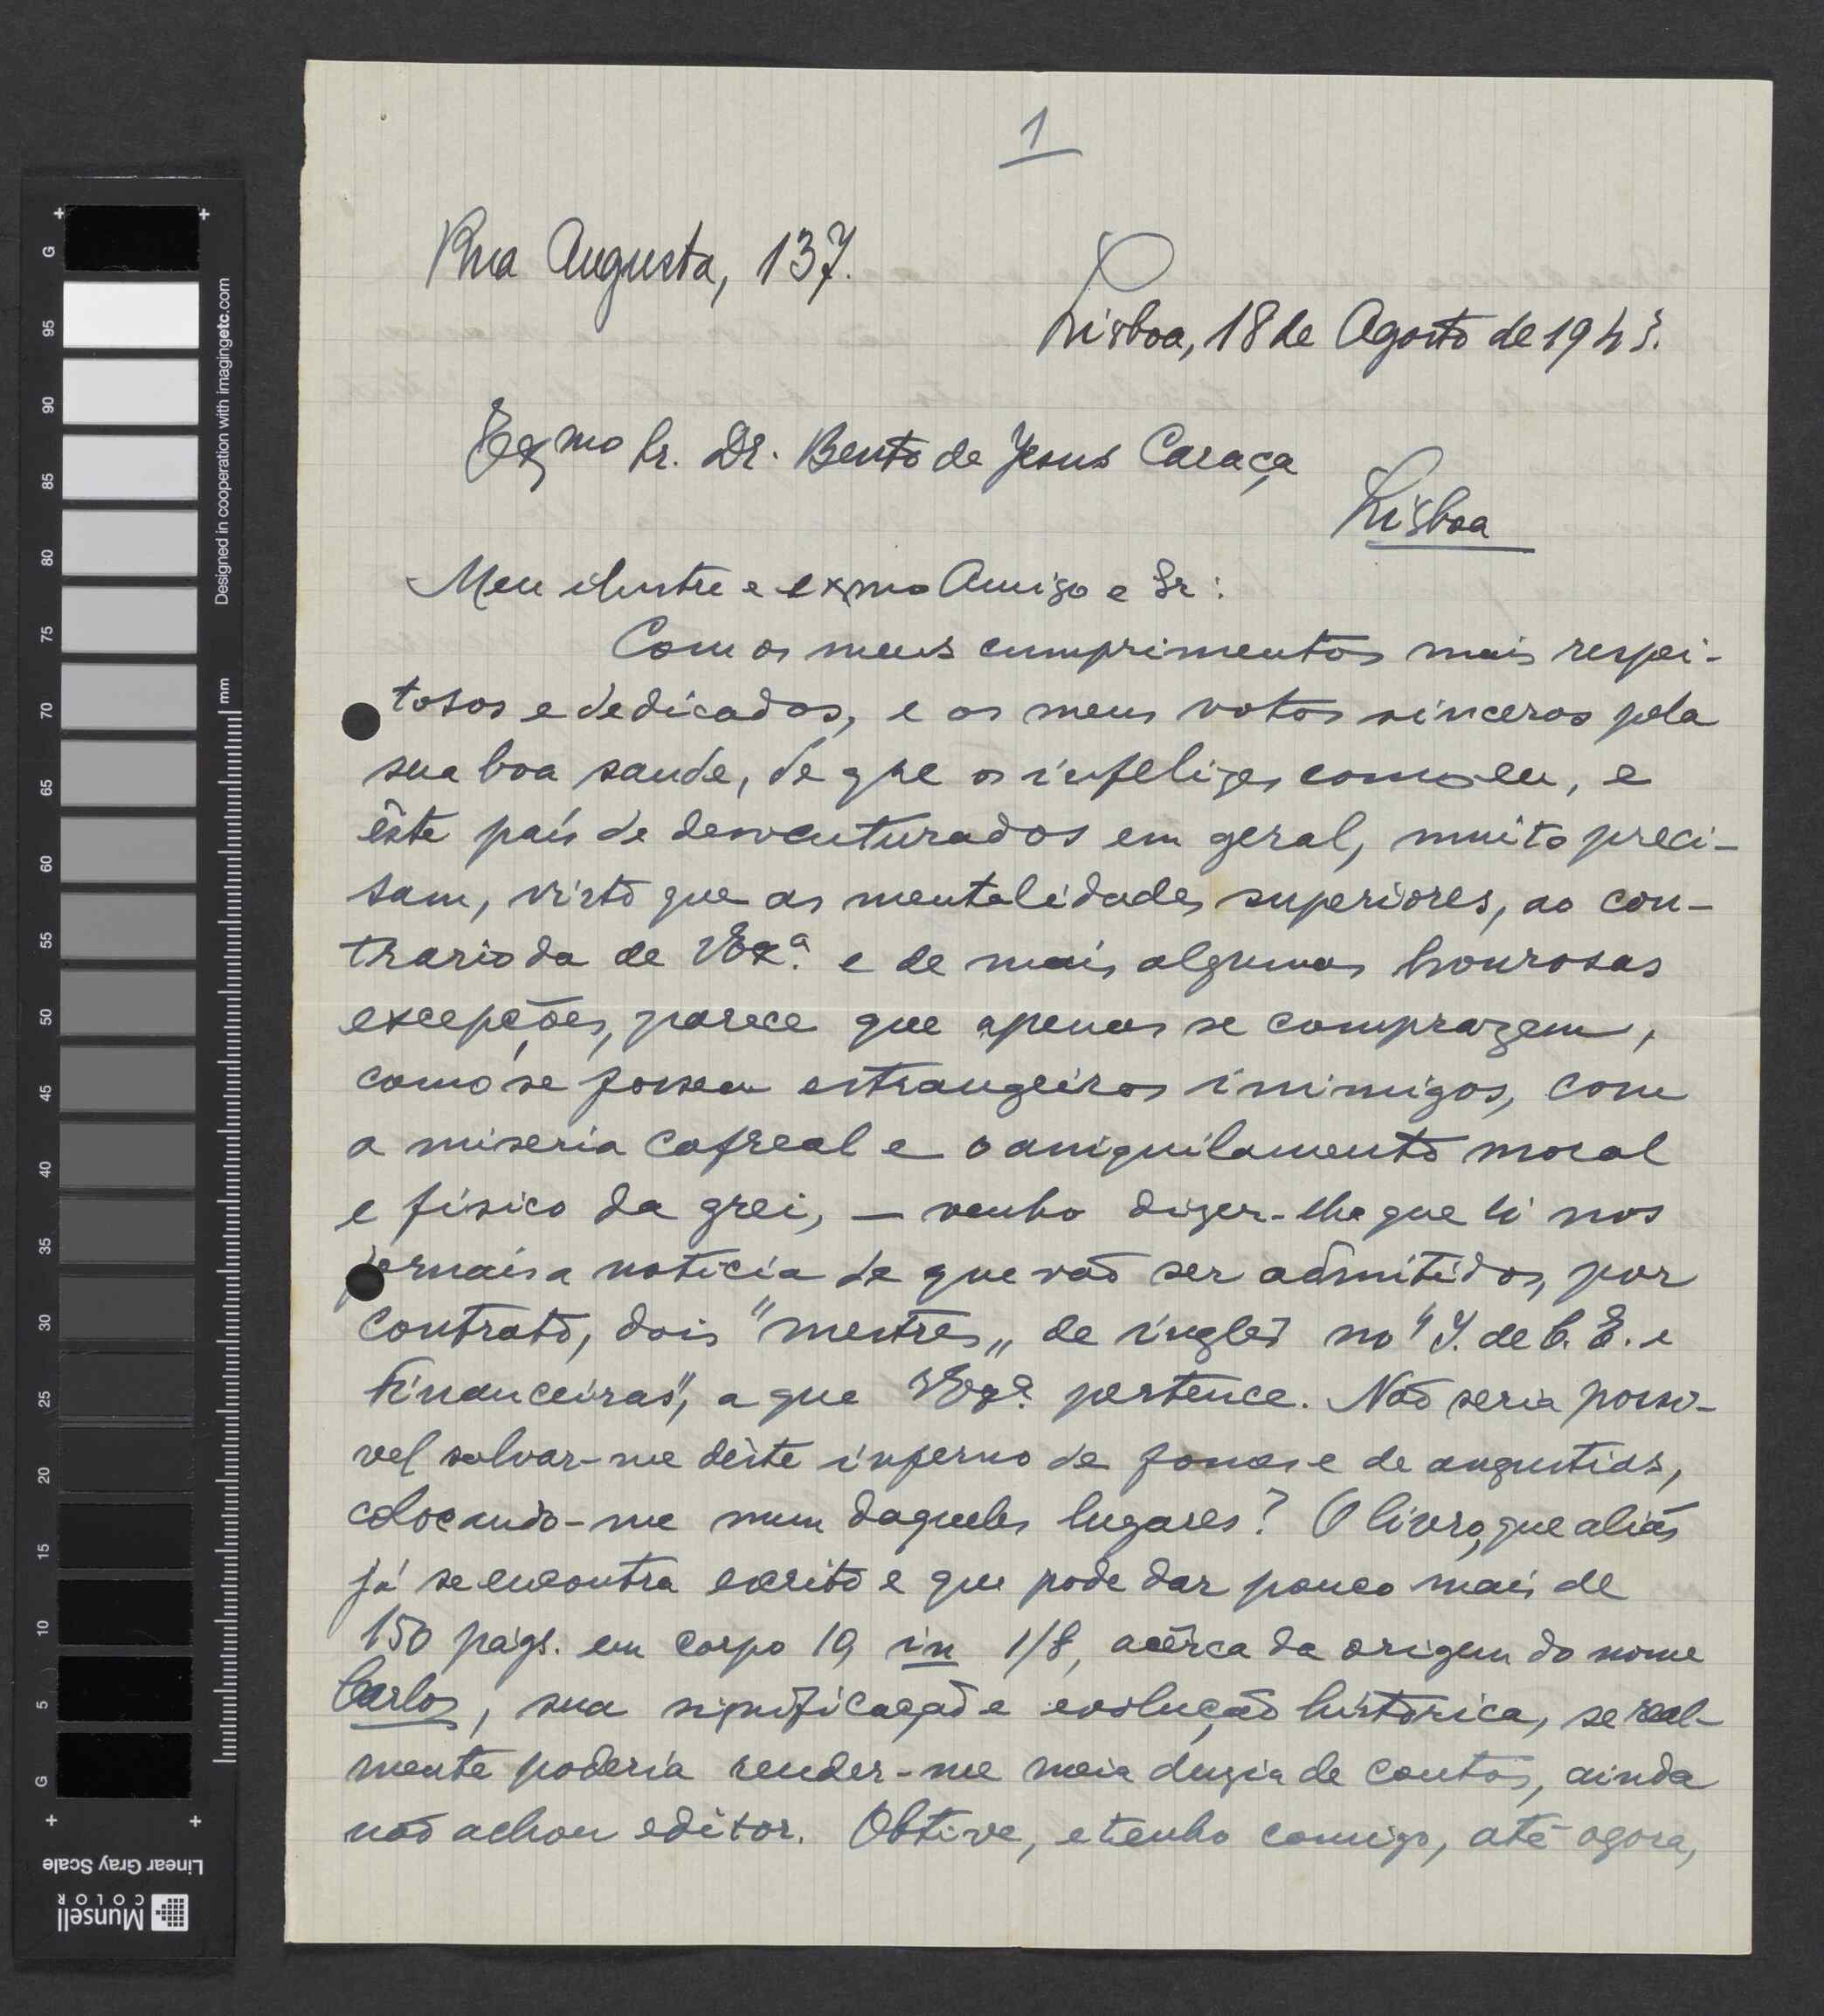 1
Rua Augusta, 137.
Lisboa, 18 de Agosto de 1943.
Exmo Sr. Dr. Bento de Jesus Caraça
Lisboa
Meu ilustre e exmo Amigo e Sr:
Com os meus cumprimentos mais respei-
tosos e dedicados, e os meus votos sinceros pela
sua boa saude, de que os infelizes como eu, e
êste país de desventurados em geral, muito preci-
sam, visto que as mentalidades superiores, ao con-
trario da de VExª. e de mais algumas honrosas
excepções, parece que apenas se comprazem,
como se fossem estrangeiros inimigos, com
a miseria cafreal e o aniquilamento moral
e físico da grei, — venho dizer-lhe que li nos
jornais a noticia de que vão ser admitidos, por
contrato, dois "mestres„ de inglês no "I. de C. E. e
Financeiras", a que VExª. pertence. Não seria possi-
vel salvar-me dêste inferno de fomes e de angustias,
colocando-me num daqueles lugares? O livro, que aliás
já se encontra escrito e que pode dar pouco mais de
150 págs. em corpo 10, in 1/8, acêrca da origem do nome
Carlos, sua significação e evolução histórica, se real-
mente poderia render-me meia duzia de contos, ainda
não achou editor. Obtive, e tenho comigo, até agora,
Designed in cooperation with imagingetc.com
mm
G
95
90
85
80
75
70
65
60
55
50
45
40
35
30
25
20
15
10
5
G
Linear Gray Scale
Munsell
COLOR